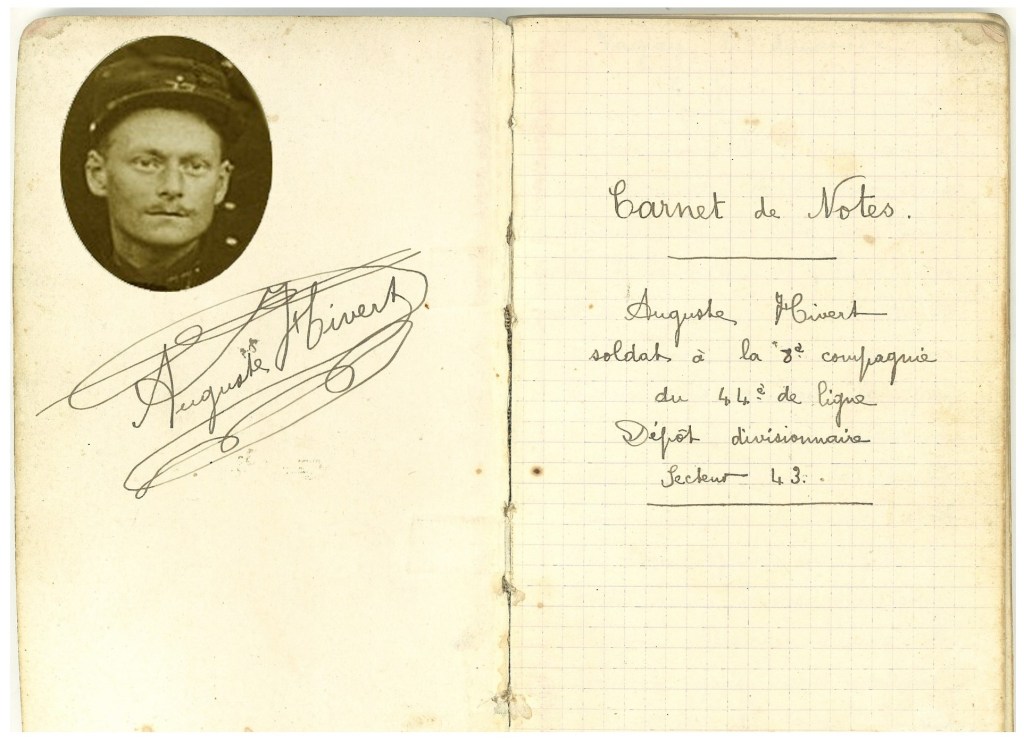 Auguste Hivert
Carnet de Notes.
Auguste Hivert
soldat à la 8e compagnie
du 44e de ligne
Dépôt divisionnaire
Secteur 43.